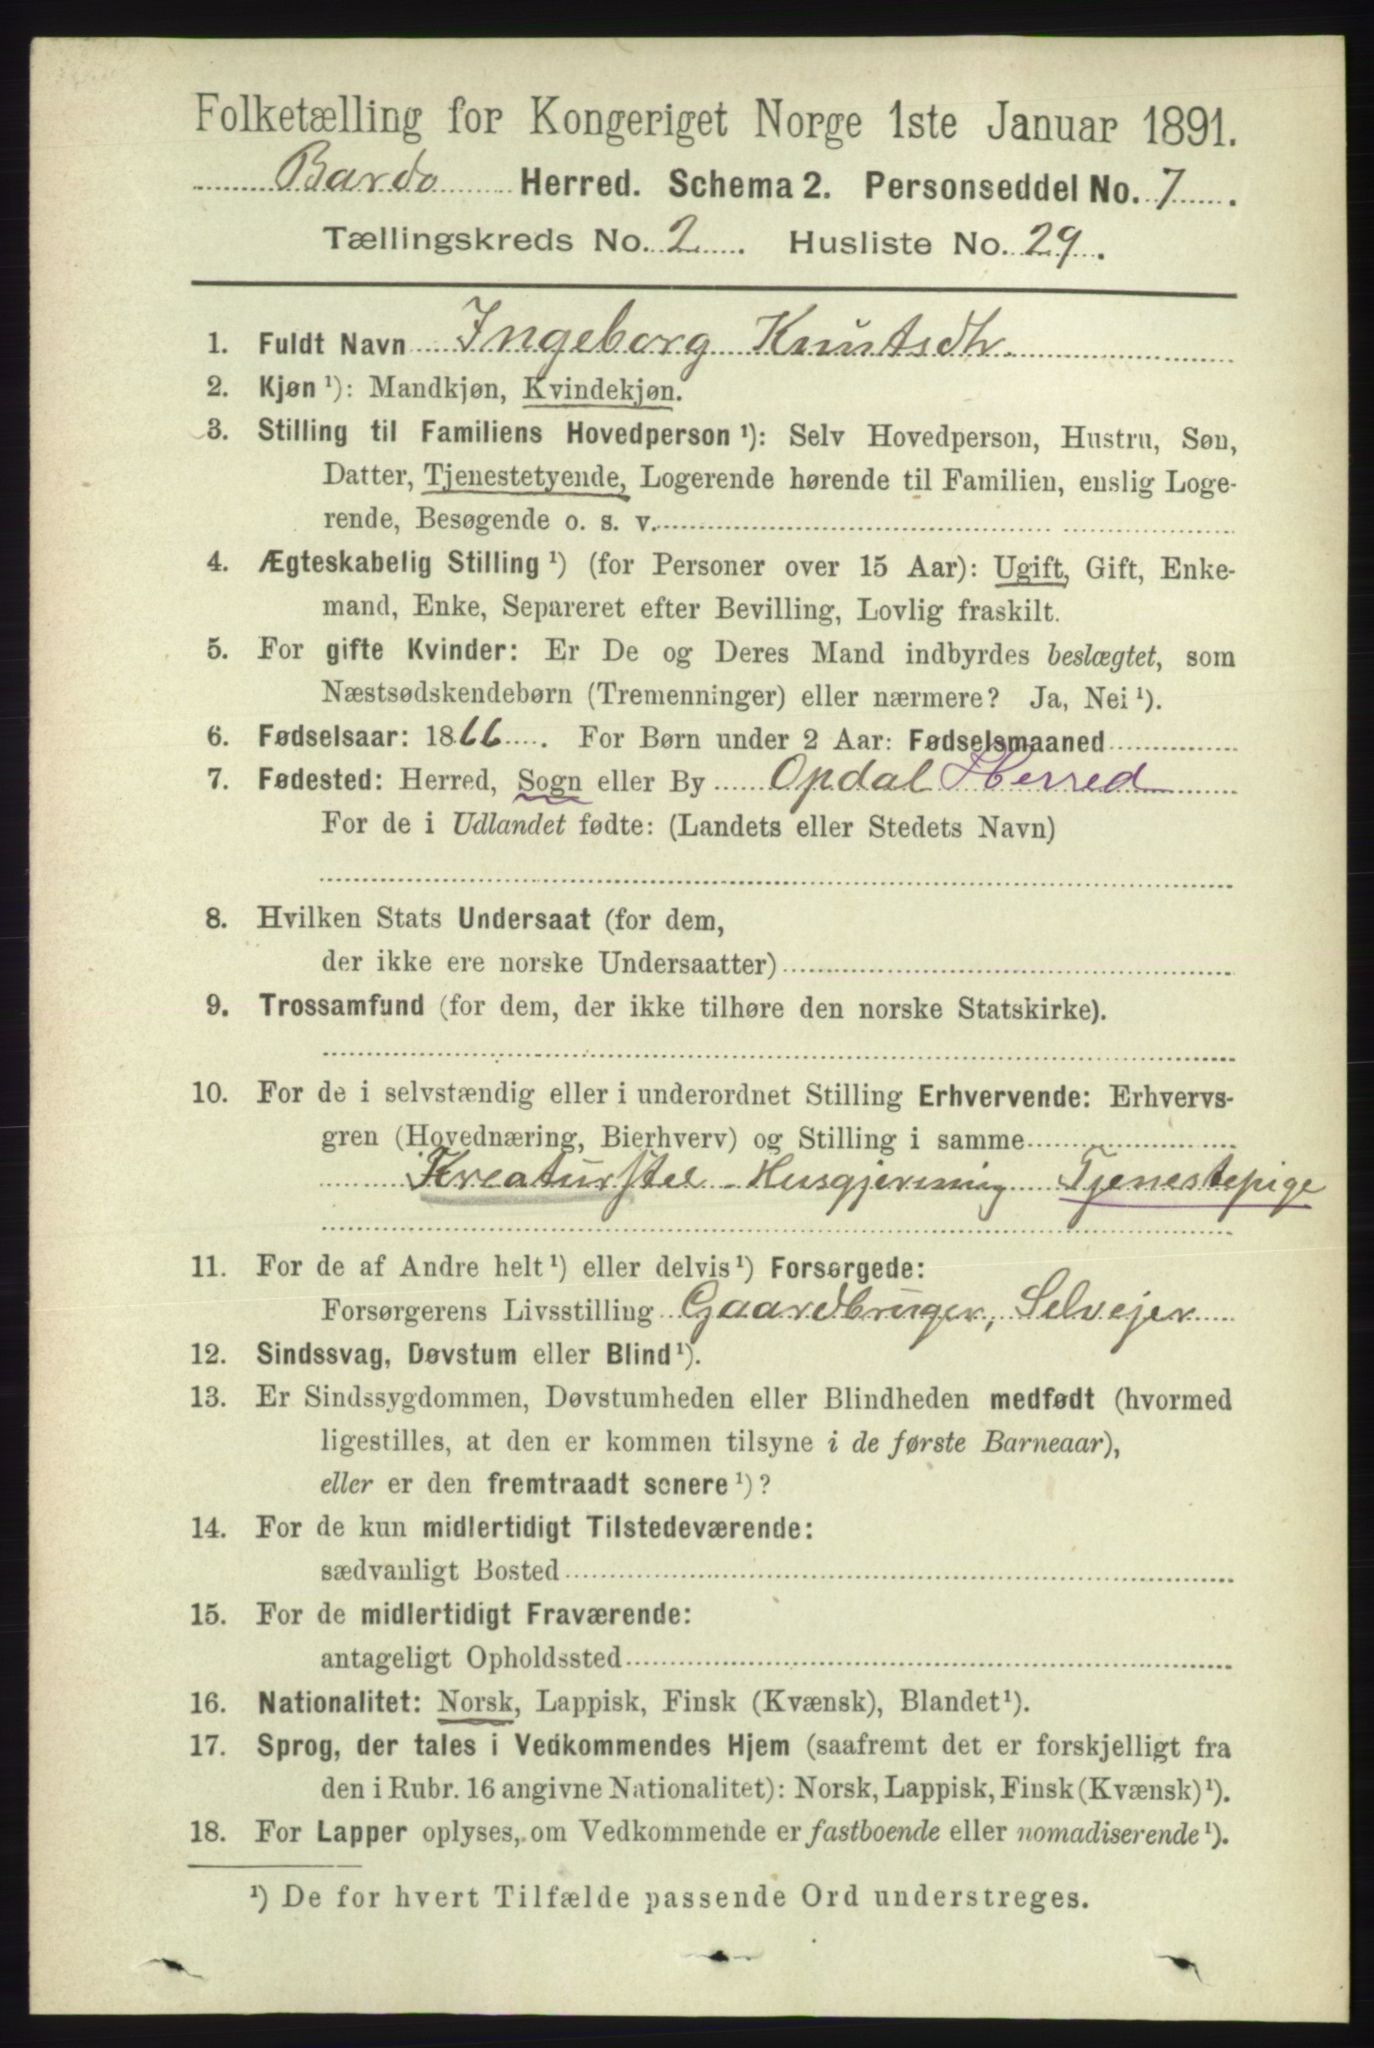 Folketælling for Kongeriget Norge 1ste Januar 1891.
Bardo Herred. Schema 2. Personseddel No. 7.
Tællingskreds No. 2. Husliste No. 29.
1. Fuldt Navn Ingeborg Knutsdtr.
2. Kjøn ¹): Mandkjøn, Kvindekjøn.
3. Stilling til Familiens Hovedperson ¹): Selv Hovedperson, Hustru, Søn,
Datter, Tjenestetyende, Logerende hørende til Familien, enslig Loge-
rende, Besøgende o. s. v.
4. Ægteskabelig Stilling ¹) (for Personer over 15 Aar): Ugift, Gift, Enke-
mand, Enke, Separeret efter Bevilling, Lovlig fraskilt.
5. For gifte Kvinder: Er De og Deres Mand indbyrdes beslægtet, som
Næstsødskendebørn (Tremenninger) eller nærmere? Ja, Nei ¹).
6. Fødselsaar: 1866. For Børn under 2 Aar: Fødselsmaaned
7. Fødested: Herred, Sogn eller By Opdal Herred
For de i Udlandet fødte: (Landets eller Stedets Navn)
8. Hvilken Stats Undersaat (for dem,
der ikke ere norske Undersaatter)
9. Trossamfund (for dem, der ikke tilhøre den norske Statskirke).
10. For de i selvstændig eller i underordnet Stilling Erhvervende: Erhvervs-
gren (Hovednæring, Bierhverv) og Stilling i samme
Kreaturstel - Husgjerning Tjenestepige
11. For de af Andre helt ¹) eller delvis ¹) Forsørgede:
Forsørgerens Livsstilling Gaardbruger, Selvejer
12. Sindssvag, Døvstum eller Blind ¹).
13. Er Sindssygdommen, Døvstumheden eller Blindheden medfødt (hvormed
ligestilles, at den er kommen tilsyne i de første Barneaar),
eller er den fremtraadt senere ¹)?
14. For de kun midlertidigt Tilstedeværende:
sædvanligt Bosted
15. For de midlertidigt Fraværende:
antageligt Opholdssted
16. Nationalitet: Norsk, Lappisk, Finsk (Kvænsk), Blandet ¹).
17. Sprog, der tales i Vedkommendes Hjem (saafremt det er forskjelligt fra
den i Rubr. 16 angivne Nationalitet): Norsk, Lappisk, Finsk (Kvænsk) ¹).
18. For Lapper oplyses, om Vedkommende er fastboende eller nomadiserende ¹).
¹) De for hvert Tilfælde passende Ord understreges.